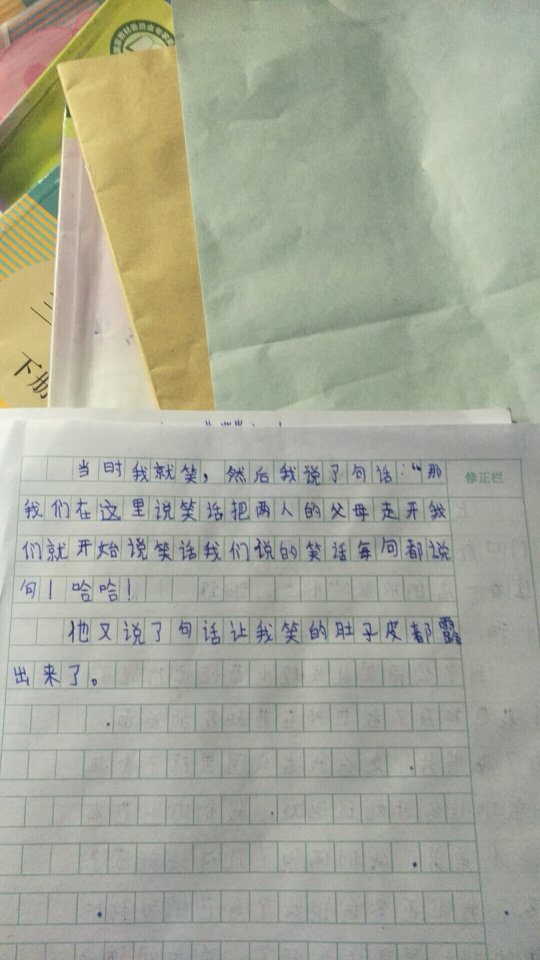 下册
修正栏
当时我就笑，然后我说了句话："那
我们在这里说笑话把两人的父母走开我
们就开始说笑话我们说的笑话每句都说
句！哈哈！
他又说了句话让我笑的肚子皮都露
出来了。